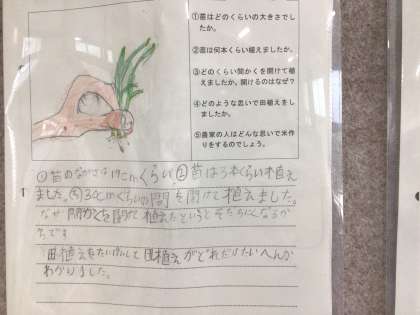 ①苗はどのくらいの大きさでし
たか。
②苗は何本くらい植えましたか。
③どのくらい間かくを開けて植
えましたか。開けるのはなぜ？
④どのような思いで田植えをし
ましたか。
⑤農家の人はどんな思いで米作
りをするのでしょう。
①苗のながさは けcmくらい ②苗は3本くらい植え
ました。③30cmくらいの間を開けて植えました。
なぜ間かくを開けて植えたというとそだちにくくなるか
らです
田植えをたいけんして田植えがどれだけたいへんか
わかりました。